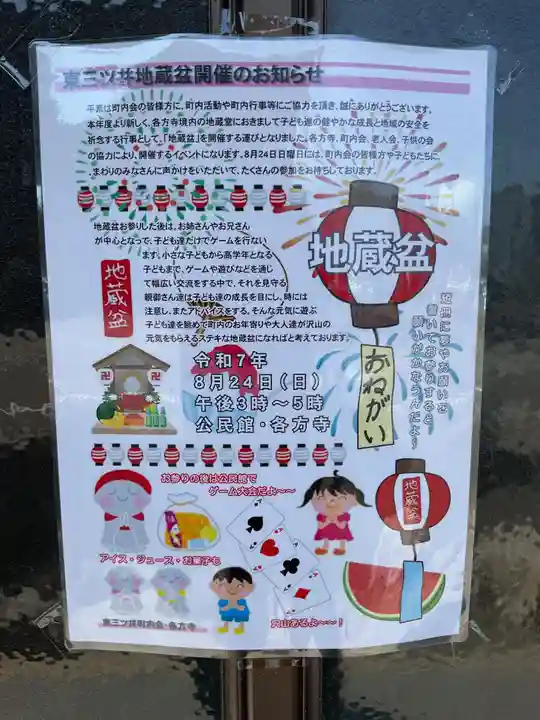 東三ツ井地蔵盆開催のお知らせ
平素は町内会の皆様方に、町内活動や町内行事等にご協力を頂き、誠にありがとうございます。
本年度より新しく、各方寺境内の地蔵堂におきまして子ども達の健やかな成長と地域の安全を
祈念する行事として、「地蔵盆」を開催する運びとなりました。各方寺、町内会、老人会、子供の会
の協力により、開催するイベントになります。8月24日日曜日には、町内会の皆様方や子どもたちに、
まわりのみなさんに声かけをいただいて、たくさんの参加をお待ちしております。
地蔵盆お参りした後は、お姉さんやお兄さん
が中心となって、子ども達だけでゲームを行ない
ます。小さな子どもから高学年となる
子どもまで、ゲームや遊びなどを通じ
て幅広い交流をする中で、それを見守る
親御さん達は子ども達の成長を目にし、時には
注意し、またアドバイスをする。そんな元気に遊ぶ
子ども達を眺めて町内のお年寄りや大人達が沢山の
元気をもらえるステキな地蔵盆になればと考えております。
地蔵盆
地蔵盆
おねがい
短冊に夢やお願いを
書いてお参りすると
願いがかなうんだよ〜
令和7年
8月24日(日)
午後3時〜5時
公民館・各方寺
お参りの後は公民館で
ゲーム大会だよ〜〜
地蔵盆
A
A
A
A
アイス・ジュース・お菓子も
東三ツ井町内会・各方寺
沢山あるよ〜〜!